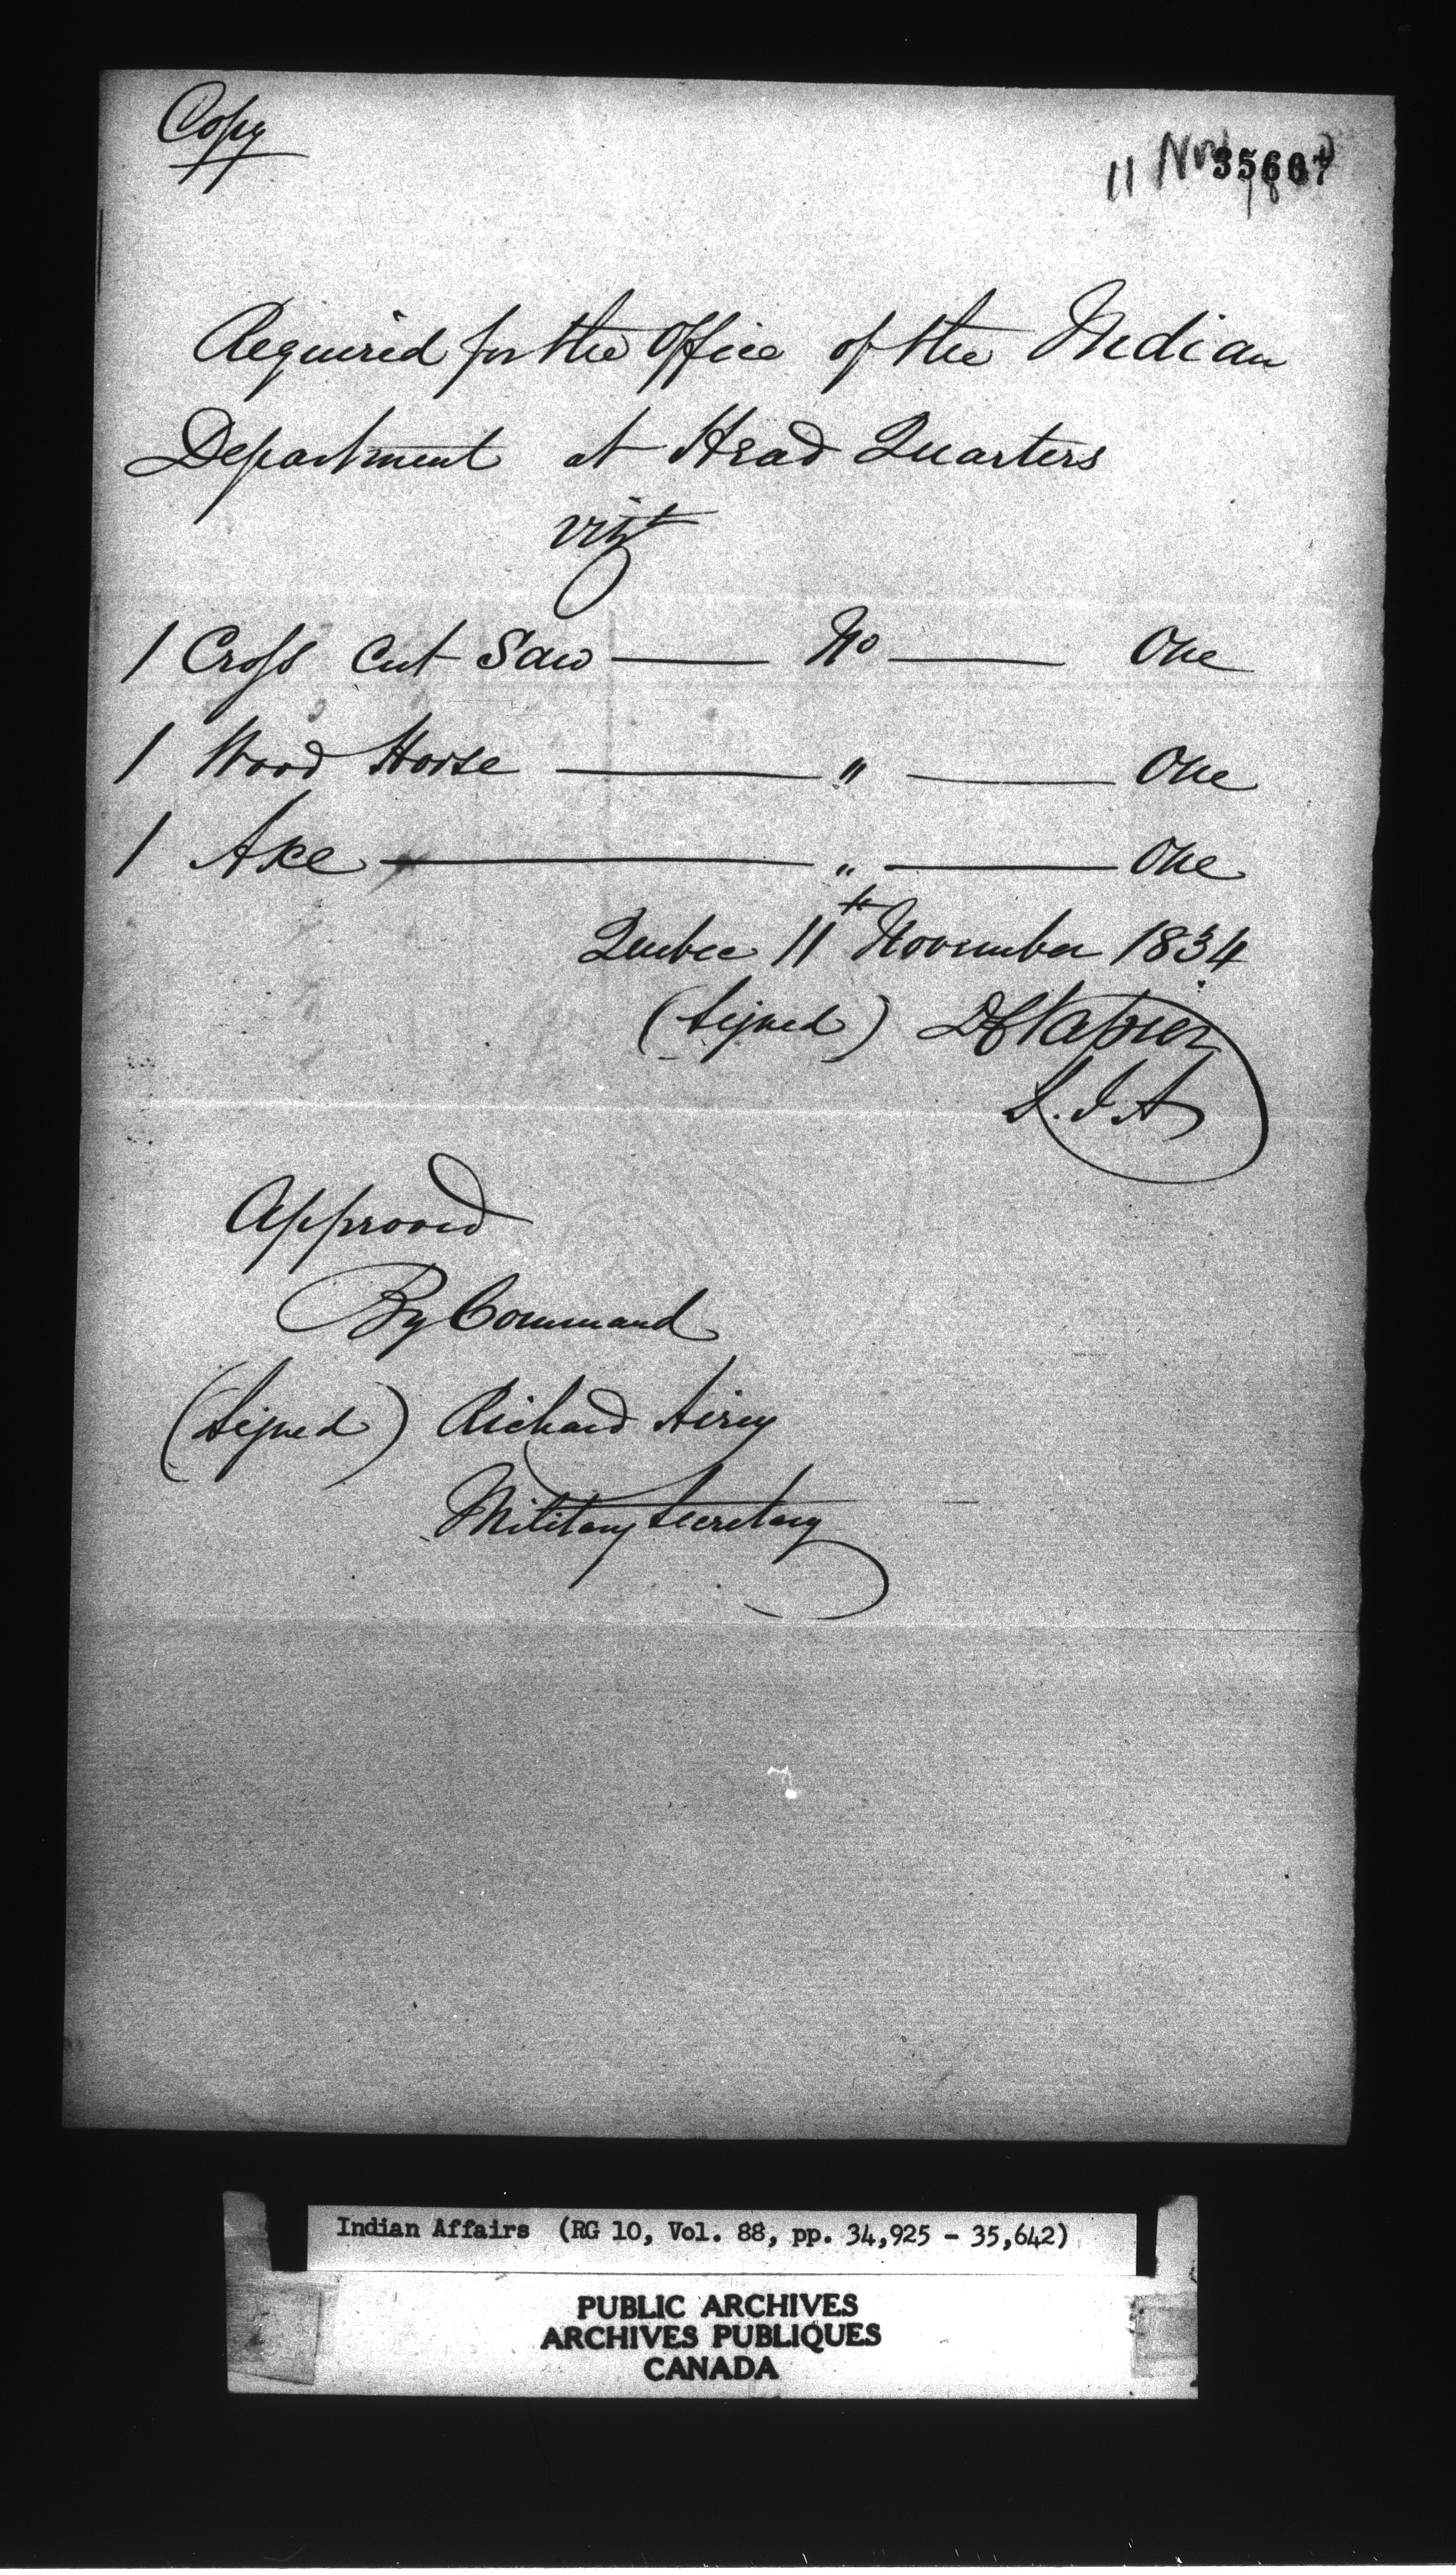 Copy
11 Nov 35607
Required for the Office of the Indian
Department at Head Quarters
vizt
1 Cross Cut Saw — No — One
1 Wood Horse — " — One
1 Axe — " — One
Quebec 11th November 1834
(Signed) D C Napier
S. I. A
Approved
By Command
(Signed) Richard Airey
Military Secretary
Indian Affairs (RG 10, Vol. 88, pp. 34,925 - 35,642)
PUBLIC ARCHIVES
ARCHIVES PUBLIQUES
CANADA